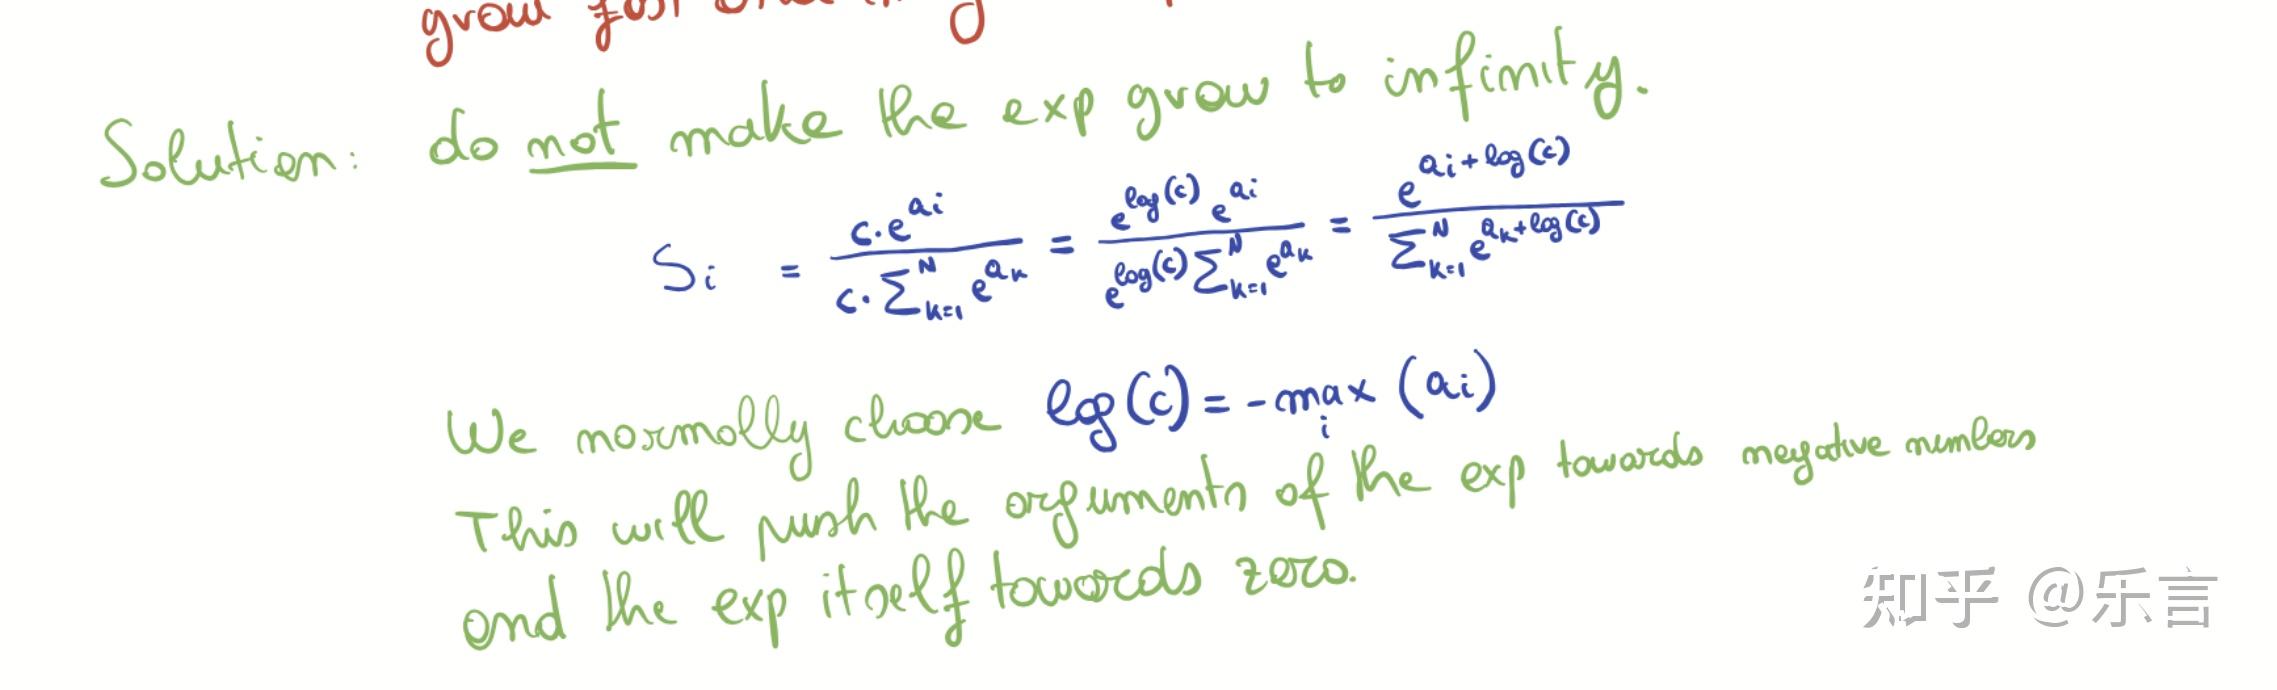 grow fast and
Solution: do not make the exp grow to infinity.
Sᵢ = c·e^{aᵢ} / c·∑_{k=1}^{N} e^{aₖ} = e^{log(c)} e^{aᵢ} / e^{log(c)} ∑_{k=1}^{N} e^{aₖ} = e^{aᵢ+log(c)} / ∑_{k=1}^{N} e^{aₖ+log(c)}
We normally choose log(c) = -max_i (aᵢ)
This will push the arguments of the exp towards negative numbers
and the exp itself towards zero.
知乎 @乐言